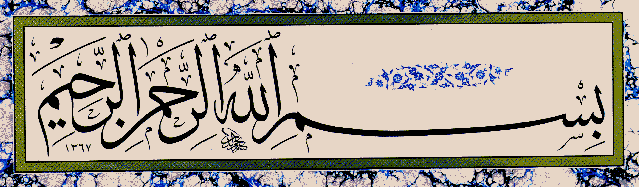 بِسْمِ اللّٰهِ الرَّحْمٰنِ الرَّحِيمِ
١٣٦٧